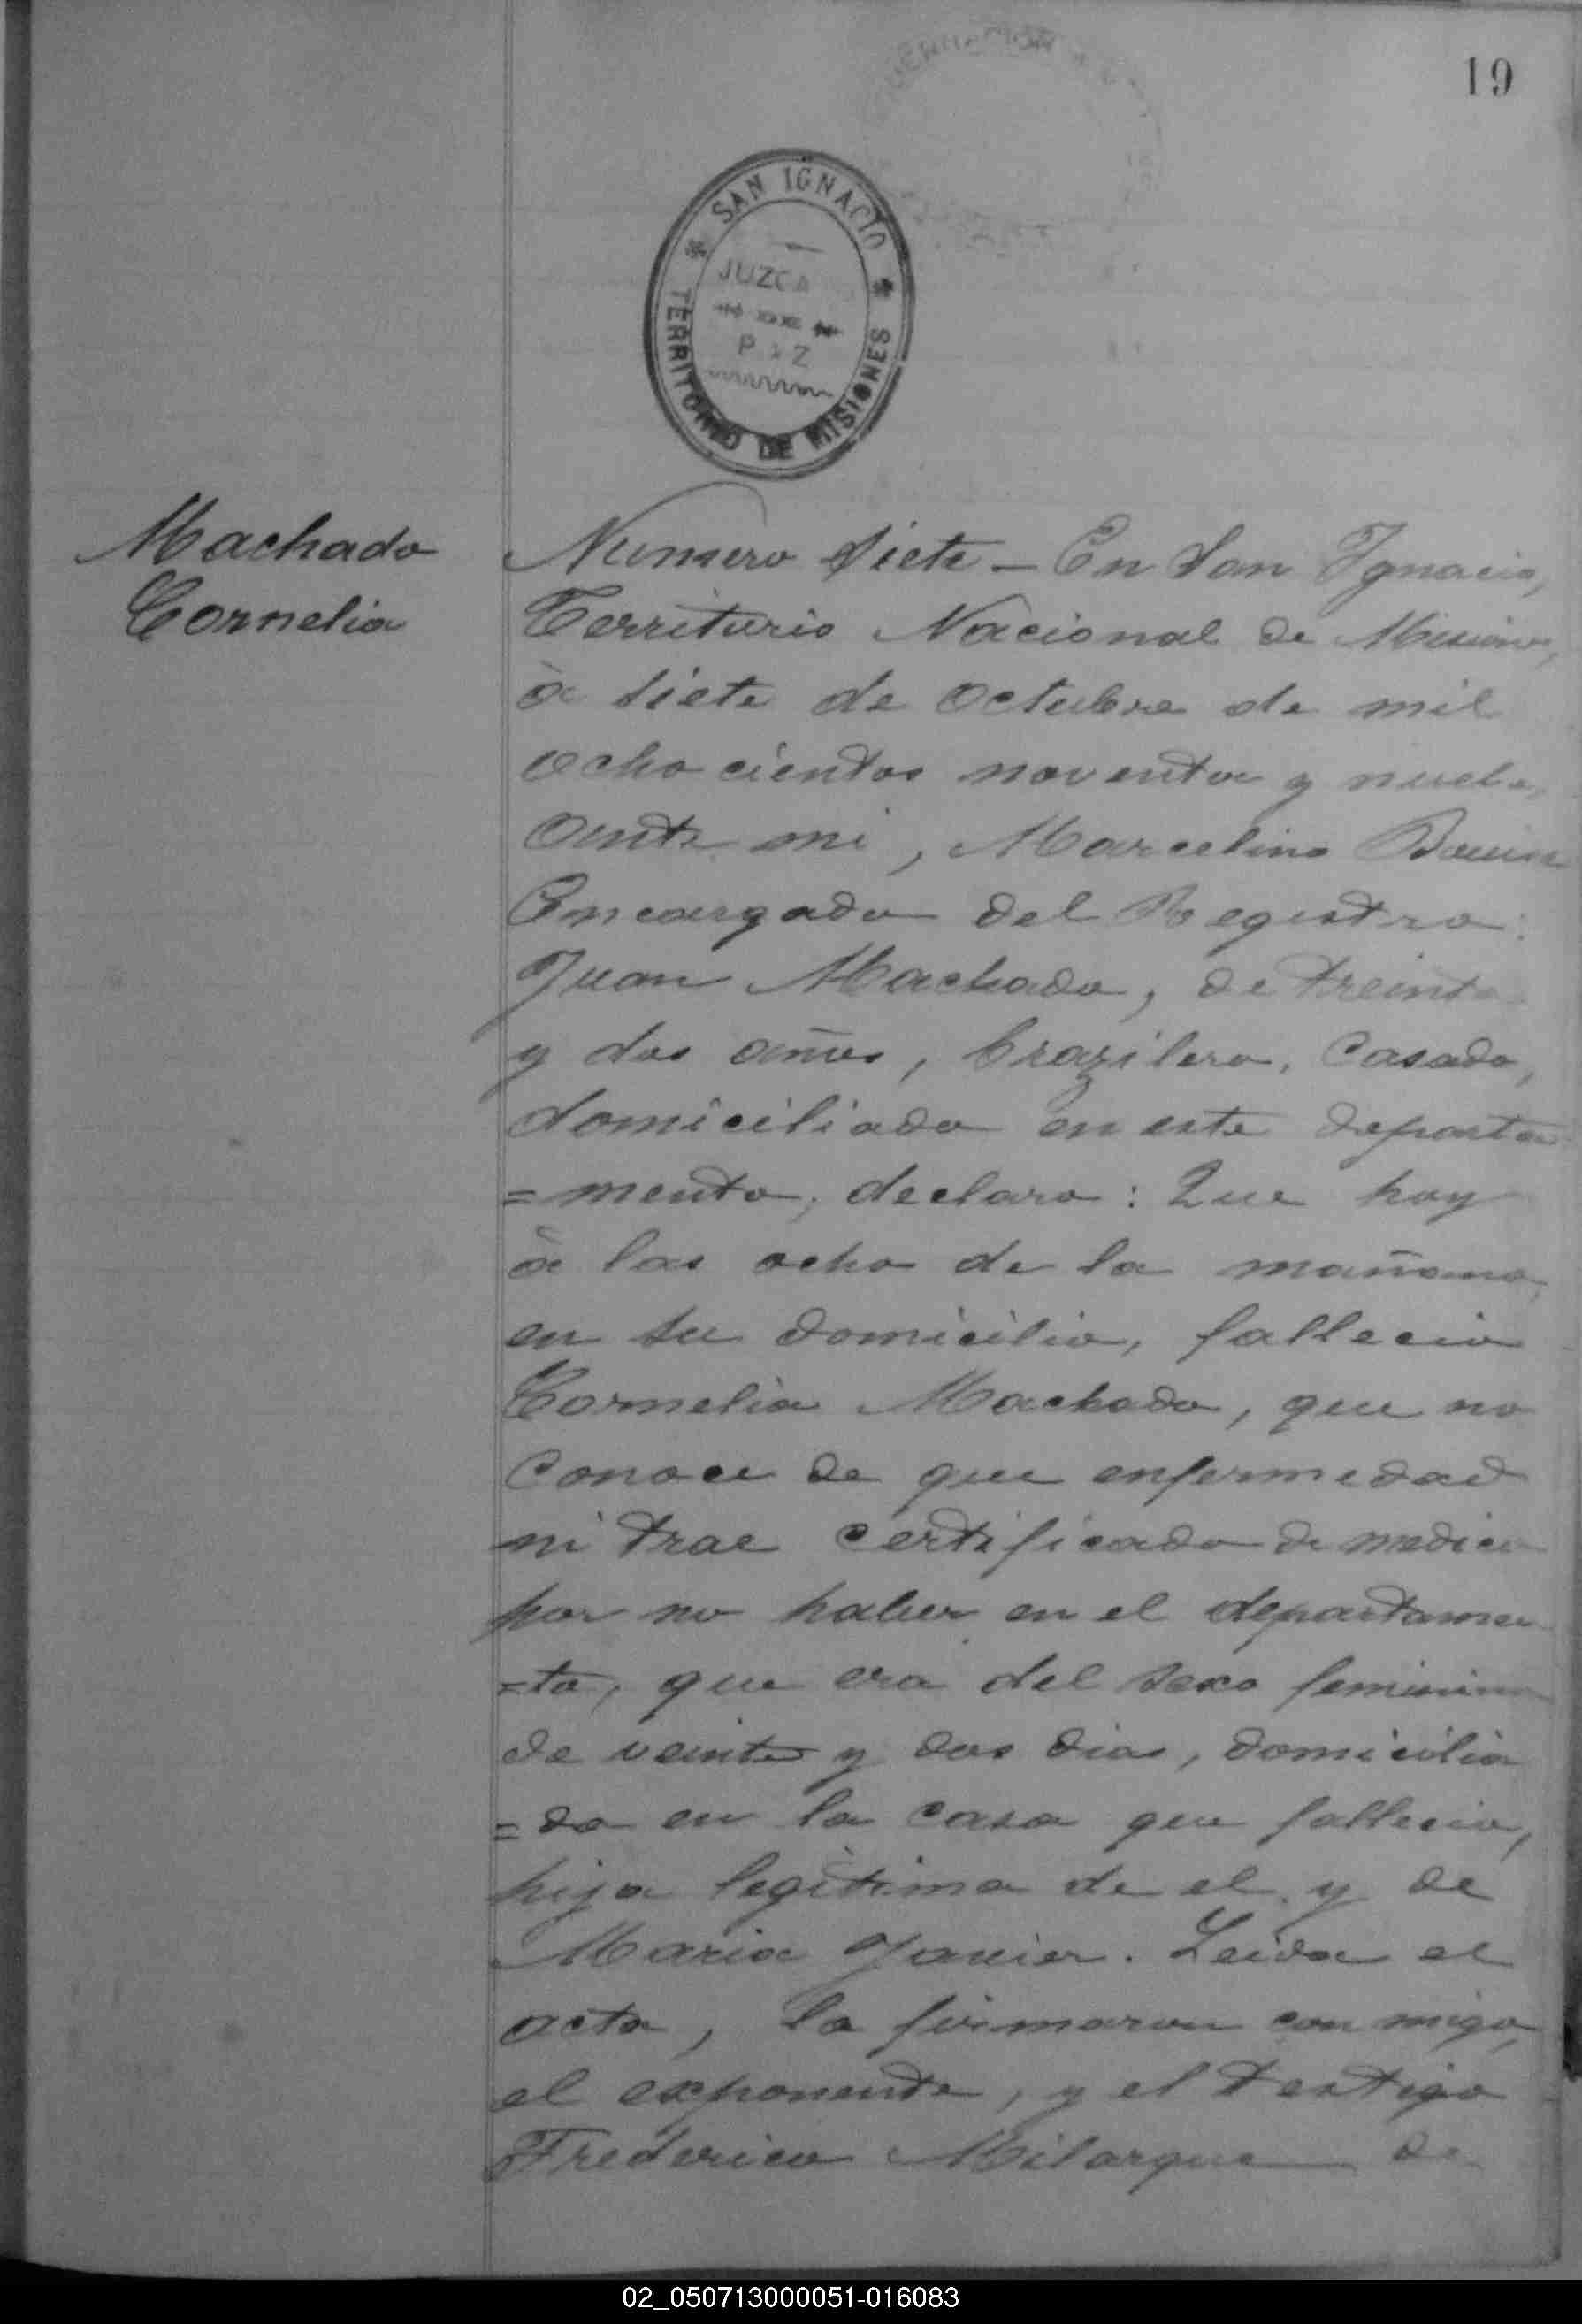 19
SAN IGNACIO
JUZGA
PAZ
TERRITORIO DE MISIONES
Machado
Cornelia
Numero siete - En San Ignacio,
Territorio Nacional de Misiones,
à siete de Octubre de mil
ocho cientos noventa y nueve,
ante mi, Marcelino
Encargado del Registro:
Juan Machado, de treinta
y dos años, brazilero, Casado,
domiciliado en este departa
=mento, declaro: Que hoy
à las ocho de la mañana,
en su domicilio, fallecio
Cornelia Machado, que no
Conoce de que enfermedad
ni trae certificado de medico
por no haber en el departamen
=to, que era del sexo feminino
de veinte y dos dias, domicilia
=da en la casa que fallecio,
hija legìtima de el y de
Maria Javier. Leida el
acta, la firmaron con migo,
el exponente, y el testigo
Frederico Milarque de
02_050713000051-016083